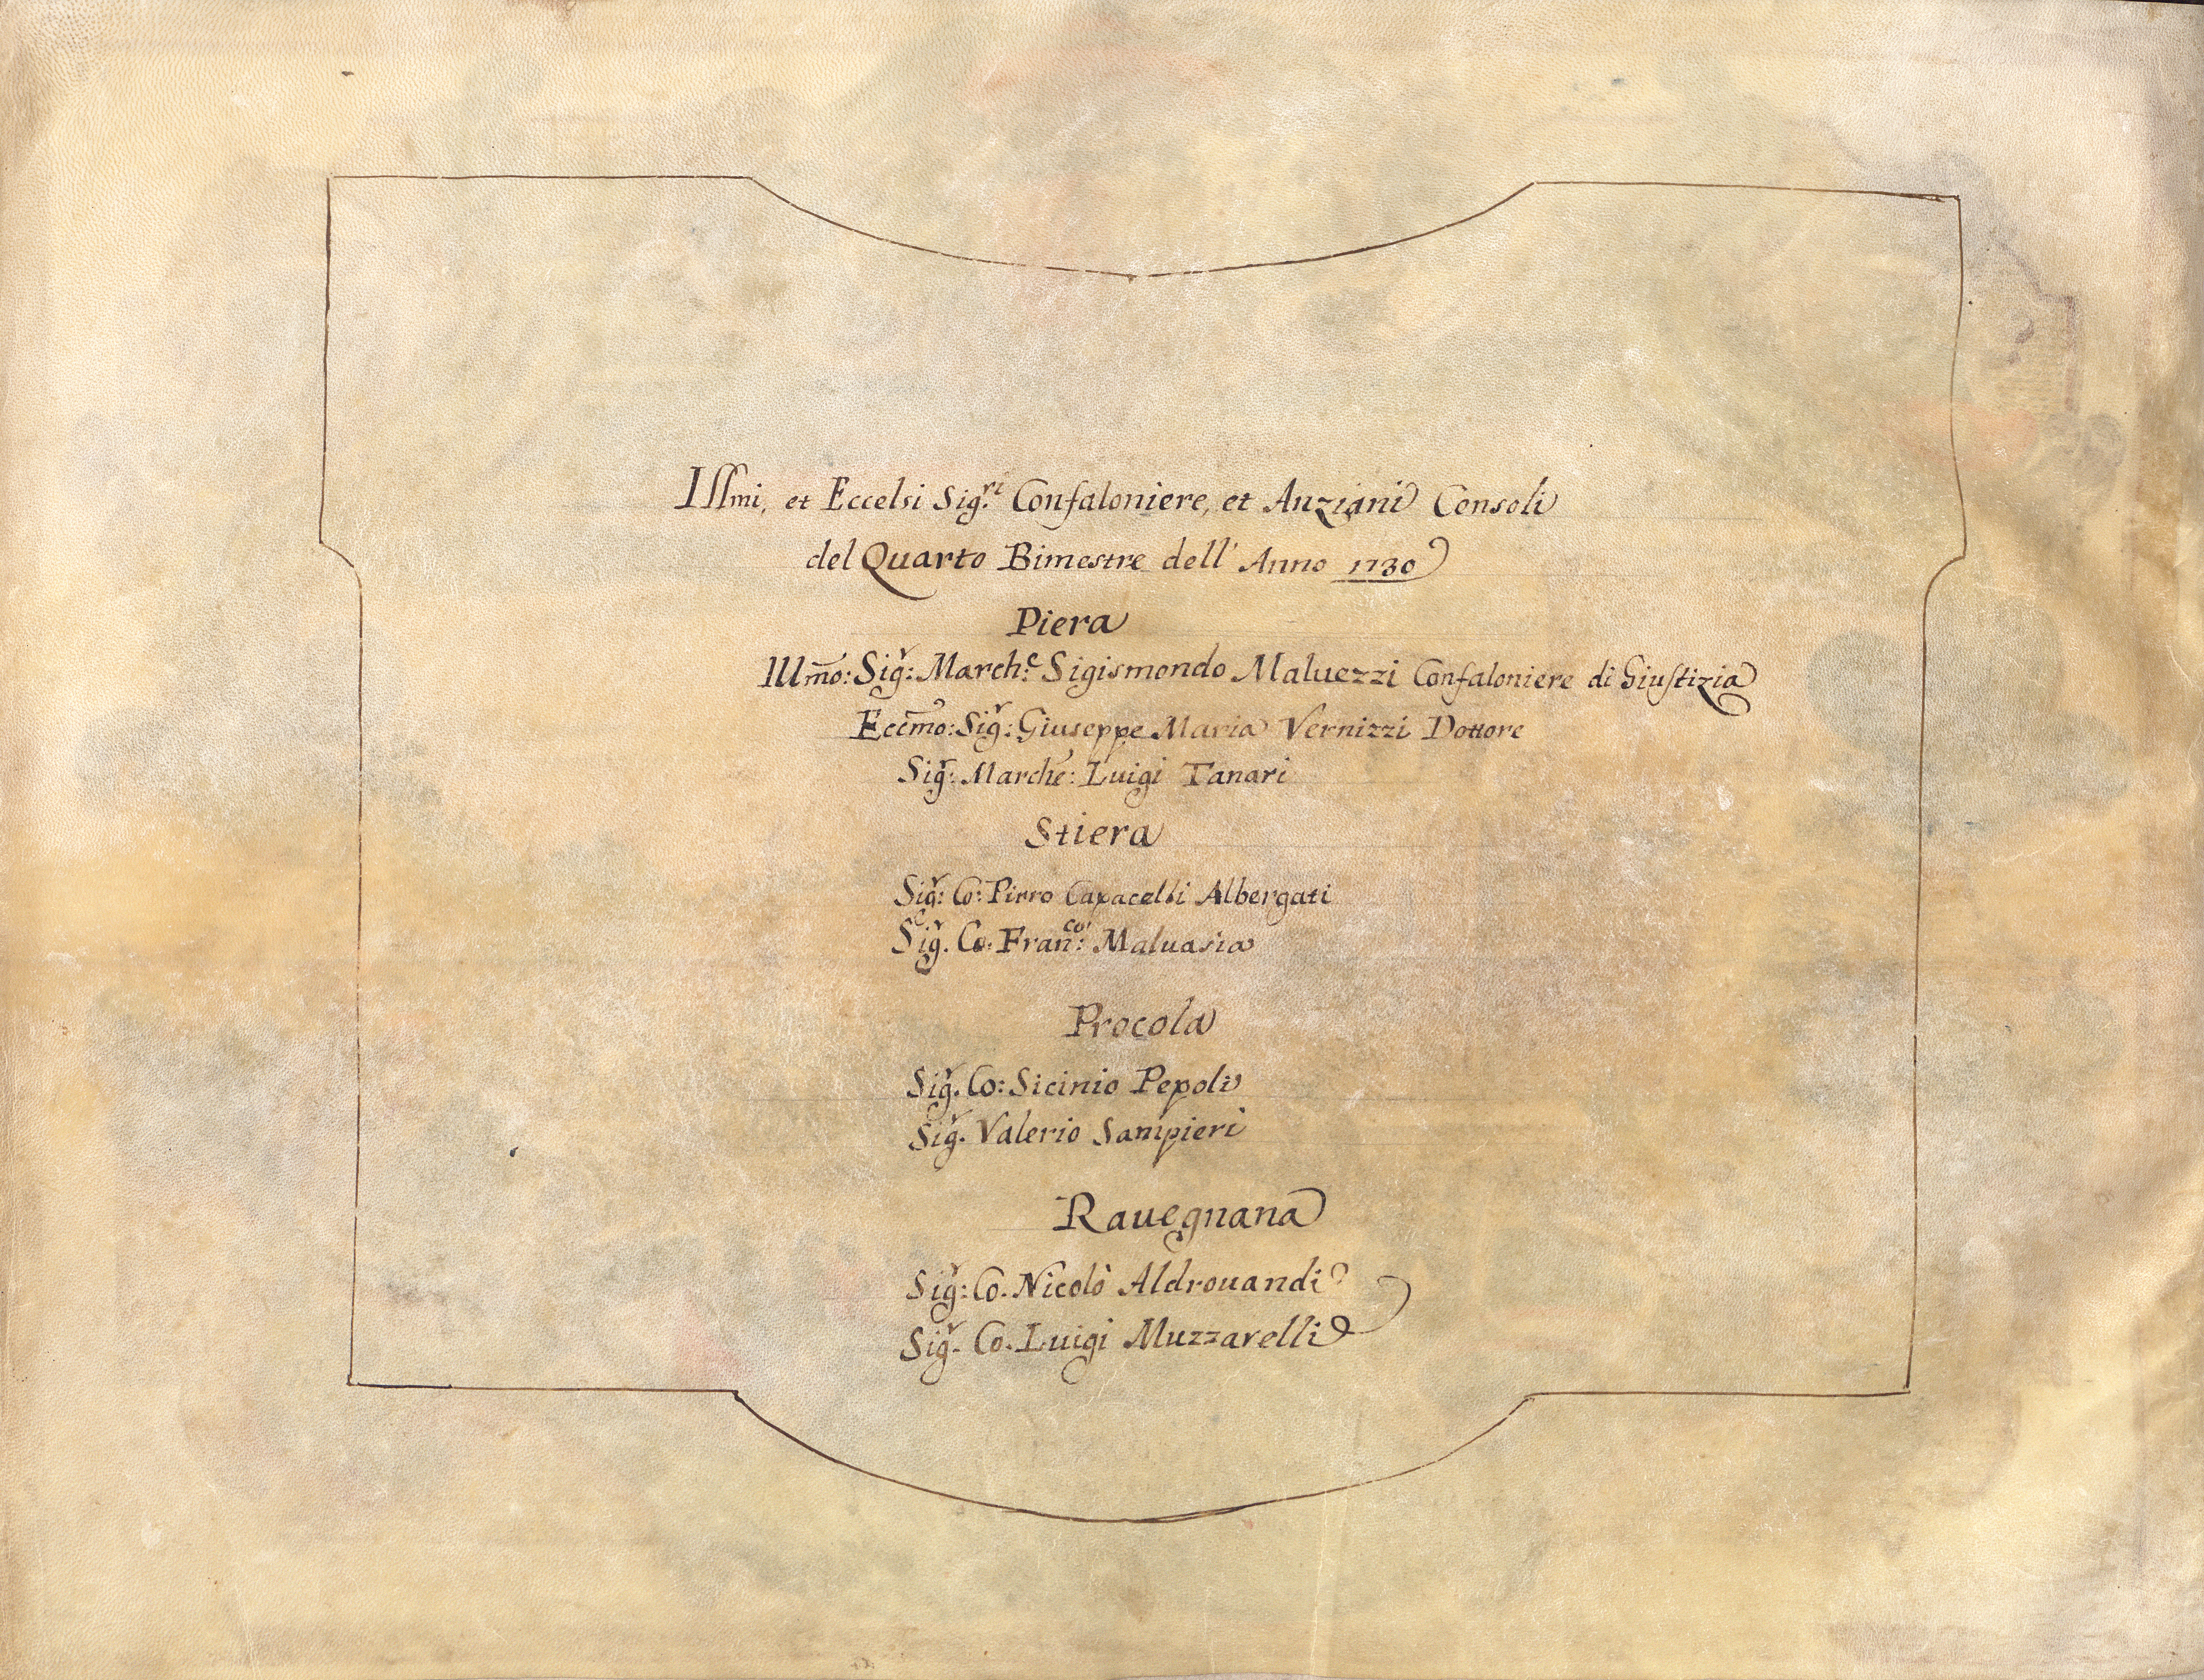 Illmi, et Eccelsi Sig.ri Confaloniere, et Anziani Consoli
del Quarto Bimestre dell' Anno 1730
Piera
Illmo: Sigr: March:e Sigismondo Maluezzi Confaloniere di Giustizia
Eccmo: Sigr: Giuseppe Maria Vernizzi Dottore
Sigr: Marche: Luigi Tanari
Stiera
Sigr: Co: Pirro Capacelli Albergati
Sigr. Co. Fran:co Maluasia
Procola
Sigr. Co: Sicinio Pepoli
Sigr. Valerio Sampieri
Rauegnana
Sigr: Co. Nicolò Aldrouandi
Sigr. Co. Luigi Muzzarelli